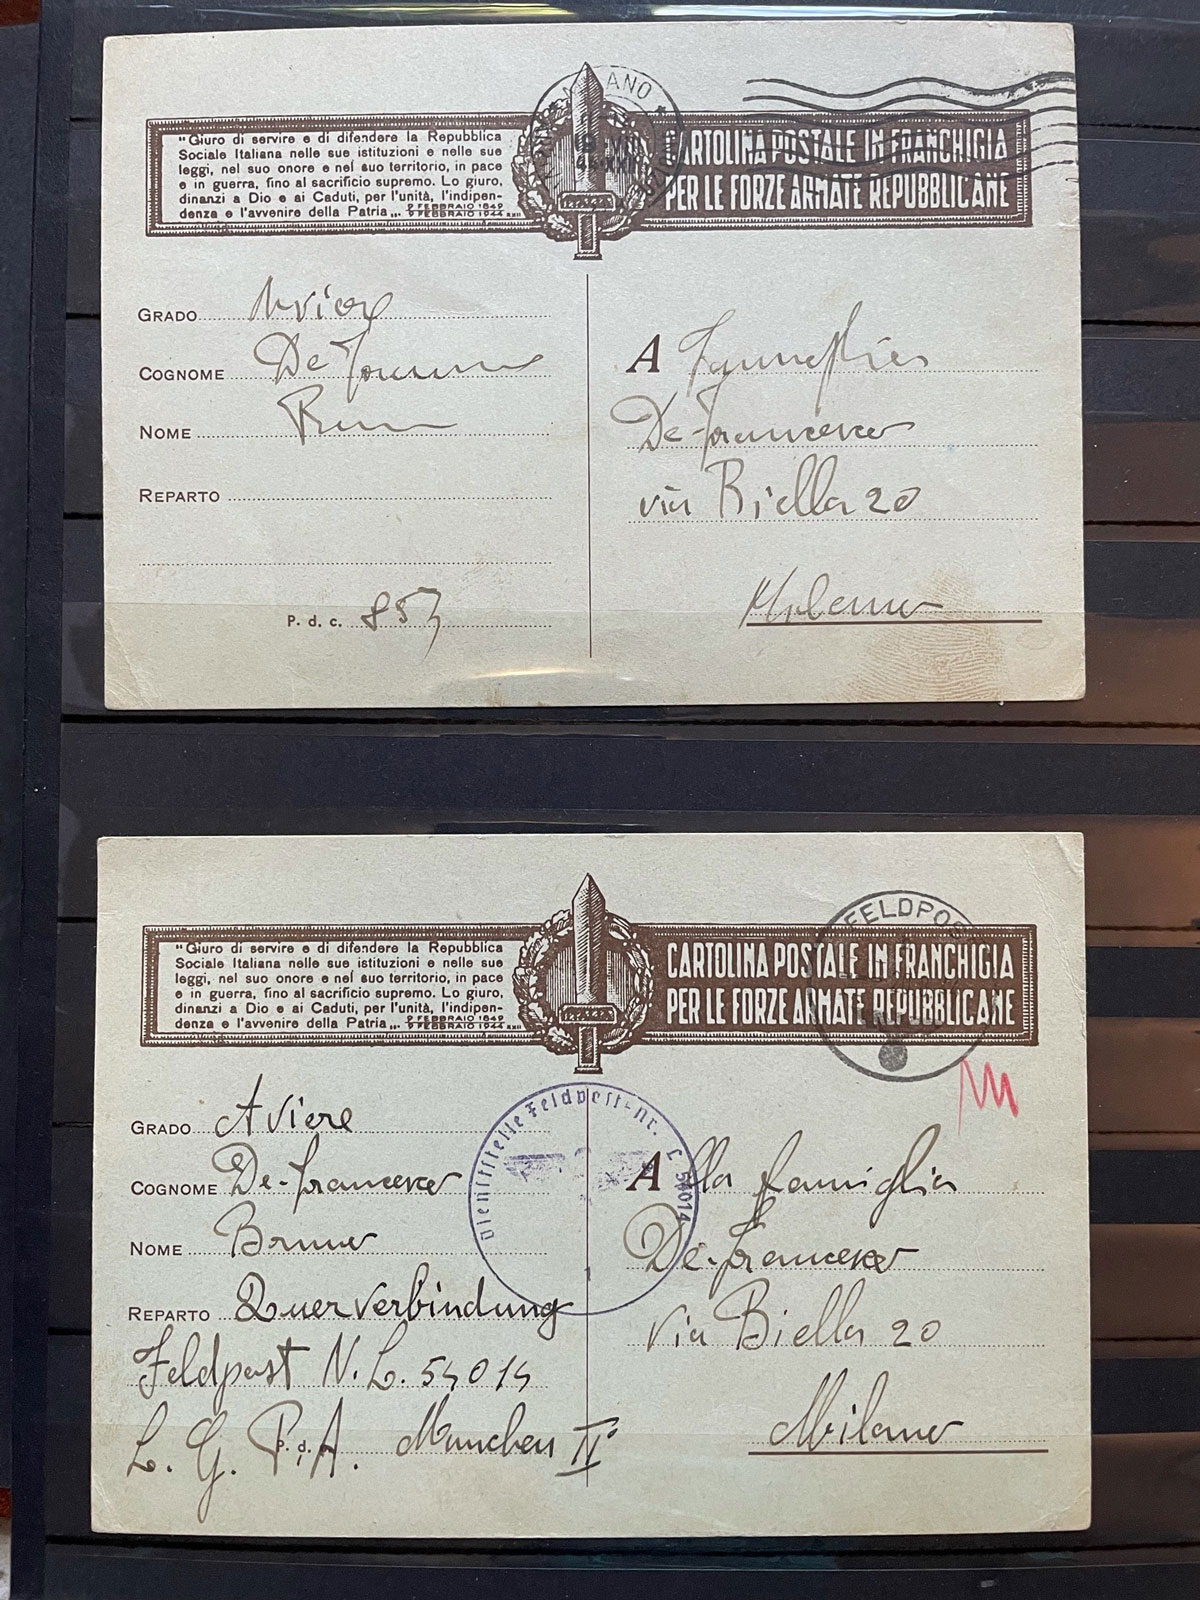 "Giuro di servire e di difendere la Repubblica
Sociale Italiana nelle sue istituzioni e nelle sue
leggi, nel suo onore e nel suo territorio, in pace
e in guerra, fino al sacrificio supremo. Lo giuro,
dinanzi a Dio e ai Caduti, per l'unità, l'indipen-
denza e l'avvenire della Patria„.
9 FEBBRAIO 1849
9 FEBBRAIO 1944 XXII
CARTOLINA POSTALE IN FRANCHIGIA
PER LE FORZE ARMATE REPUBBLICANE
GRADO Aviere
COGNOME De
NOME
REPARTO
P. d. c. 853
A famiglia
De-Francesco
via Biella 20
Milano
"Giuro di servire e di difendere la Repubblica
Sociale Italiana nelle sue istituzioni e nelle sue
leggi, nel suo onore e nel suo territorio, in pace
e in guerra, fino al sacrificio supremo. Lo giuro,
dinanzi a Dio e ai Caduti, per l'unità, l'indipen-
denza e l'avvenire della Patria„.
9 FEBBRAIO 1849
9 FEBBRAIO 1944 XXII
CARTOLINA POSTALE IN FRANCHIGIA
PER LE FORZE ARMATE REPUBBLICANE
FELDPOST
Dienststelle Feldpost-nr. L 54014
GRADO Aviere
COGNOME De-Francesco
NOME Bruno
REPARTO Querverbindung
Feldpost N. L. 54014
L. G. P. A. Munchen II°
P. d. c.
Alla famiglia
De-Francesco
via Biella 20
Milano